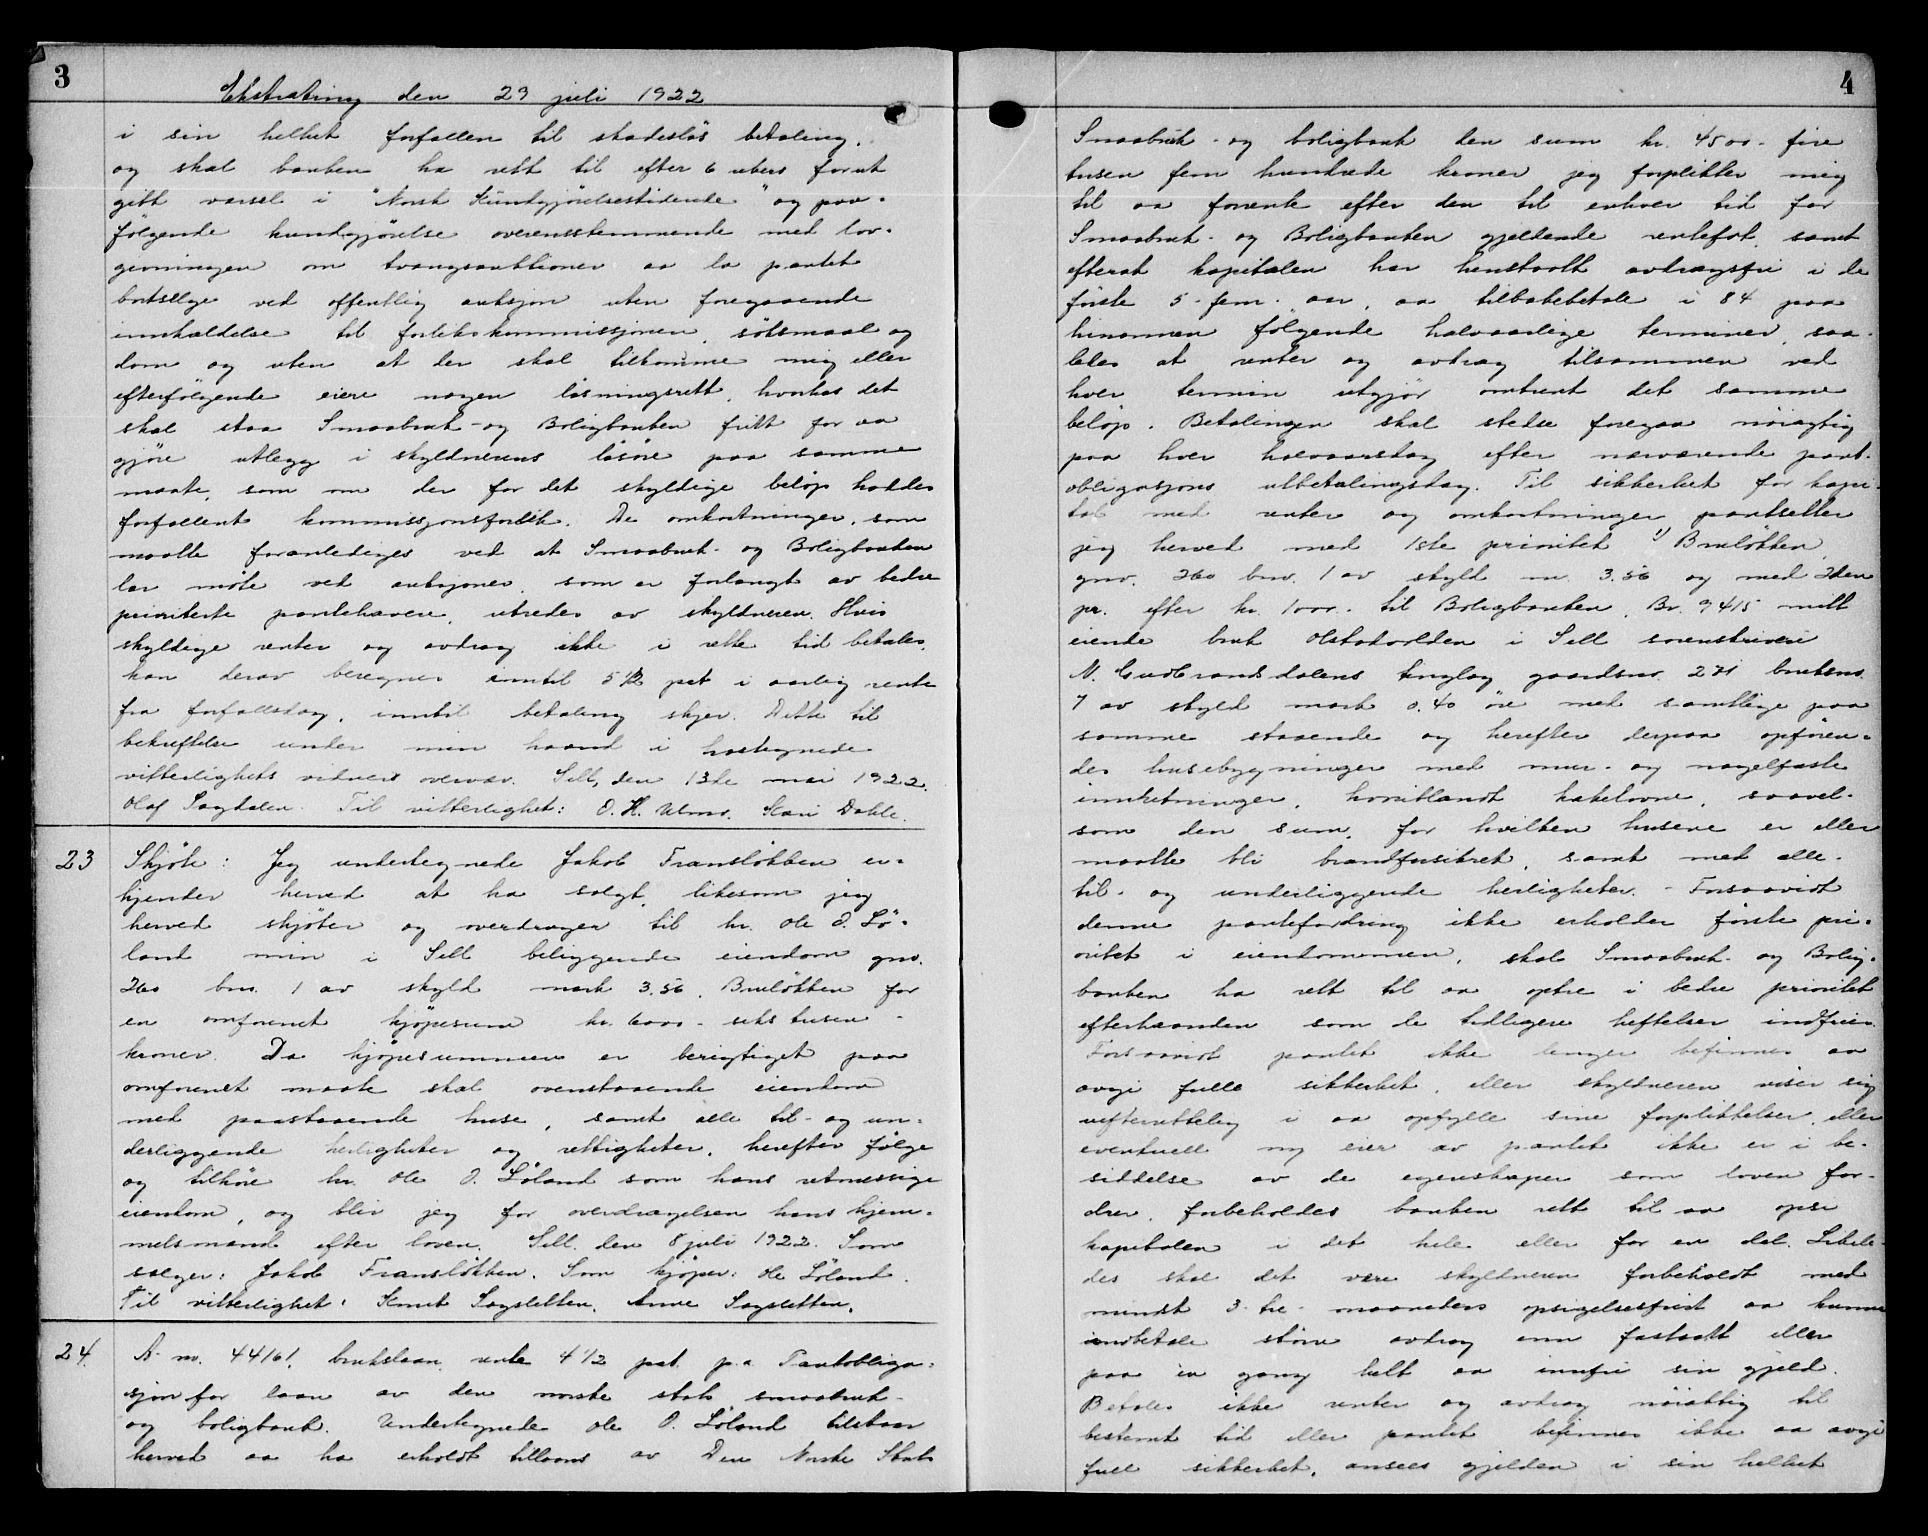 3
Ekstrating den 29 juli 1922
i sin helhet forfallen til skadesløs betaling,
og skal banken ha rett til efter 6 ukers forut
gitt varsel i "Norsk Kundgjørelsestidende" og paa-
følgende kundgjørelse overensstemmende med lov-
givningen om tvangsauktioner aa la pantet
bortselge ved offentlig auksjon uten foregaaende
innkaldelse til forlikskommissjonen, søksmaal og
dom og uten at der skal tilkomme mig eller
efterfølgende eiere nogen løsningsrett, hvorhos det
skal staa Smaabruk- og Boligbanken fritt for aa
gjøre utlegg i skyldnerens løsøre paa samme
maate, som om der for det skyldige beløp haddes
forfallent kommissjonsforlik. De omkostninger, som
maatte foranlediges ved at Smaabruk- og Boligbanken
lar møte ved auksjoner, som er forlangt av bedre
prioriterte panthavere, utredes av skyldneren. Hvis
skyldige renter og avdrag ikke i rette tid betales,
kan derav beregnes inntil 5 1/2 pct i aarlig rente
fra forfallsdag, inntil betaling skjer. Dette til
bekreftelse under min haand i hostegnede
vitterlighets vidners overvær. Sell, den 13de mai 1922.
Olaf Sagdalen. Til vitterlighet: O. K. Ulmo. Kari Dahle.
23 Skjøte: Jeg undertegnede Jakob Fransløkken er-
kjender herved at ha solgt, likesom jeg
herved skjøter og overdrager til hr. Ole O. Lø-
land min i Sell beliggende eiendom gno.
260 bno. 1 av skyld mark 3.56, Bruløkken for
en omforenet kjøpesum kr. 6000 - seks tusen -
kroner. Da kjøpesummen er berigtiget paa
omforenet maate skal ovenstaaende eiendom
med paastaaende huse, samt alle til- og un-
derliggende herligheter og rettigheter, herefter følge
og tilhøre hr. Ole O. Løland som hans retmessige
eiendom, og blir jeg for overdragelsen hans hjem-
melsmand efter loven. Sell. den 8 juli 1922. Som
selger: Jakob Fransløkken. Som kjøper: Ole Løland.
Til vitterlighet: Knut Sagsletten. Anne Sagsletten.
24. A- no. 44161. brukslaan rente 4 1/2 pct. p.a Pantobliga-
sjon for laan av den norske stats smaabruk-
og boligbank. Undertegnede Ole O. Løland tilstaar
herved aa ha erholdt tillaans av Den Norske Stats
4
Smaabruk- og boligbank den sum kr. 4500 - fire
tusen fem hundrede kroner jeg forplikter mig
til aa forrente efter den til enhver tid for
Smaabruk- og Boligbanken gjeldende rentefot, samt
efterat kapitalen har henstaatt avdragsfri i de
første 5 - fem - aar, aa tilbakebetale i 84 paa
hinannen følgende halvaarlige terminer, saa-
ledes at renter og avdrag tilsammen ved
hver termin utgjør omtrent det samme
beløp. Betalingen skal stedse foregaa nøiagtig
paa hver halvaarsdag efter nærværende pant-
obligasjons utbetalingsdag. Til sikkerhet for kapi-
tal med renter og omkostninger pantsetter
jeg herved med 1ste prioritet 1) Bruløkken,
gno. 260 bno. 1 av skyld m. 3.56 og med 2den
pr. efter kr. 1000.- til Boligbanken, Bv. 9415 mitt
eiende bruk Olstadvolden i Sell sorenskriveri
N. Gudbrandsdalens tinglag gaardsno. 271 bruksno.
7 av skyld mark 0.40 øre med samtlige paa
samme staaende og herefter derpaa opføren-
des husebygninger med mur- og nagelfaste
innretninger, hvoriblandt kakelovne, saavel-
som den sum, for hvilken husene er eller
maatte bli brandforsikret, samt med alle
til- og underliggende herligheter. - Forsaavidt
denne pantefordring ikke erholder første pri-
oritet i eiendommen, skal Smaabruk- og Bolig-
banken ha rett til aa optre i bedre prioritet
efterhaanden som de tidligere heftelser indfries.
Forsaavidt pantet ikke lenger befinnes aa
avgi full sikkerhet, eller skyldneren viser sig
uefterrettelig i aa opfylle sine forpliktelser, eller
eventuell ny eier av pantet ikke er i be-
siddelse av de egenskaper som loven for-
drer, forbeholdes banken rett til aa opsi
kapitalen i det hele eller for en del. Likele-
des skal det være skyldneren forbeholdt med
mindst 3 - tre - maaneders opsigelsesfrist aa kunne
indbetale større avdrag enn fastsatt eller
paa en gang helt aa innfri sin gjeld.
Betales ikke renter og avdrag nøiaktig til
bestemt tid eller pantet befinnes ikke aa avgi
full sikkerhet, ansees gjelden i sin helhet